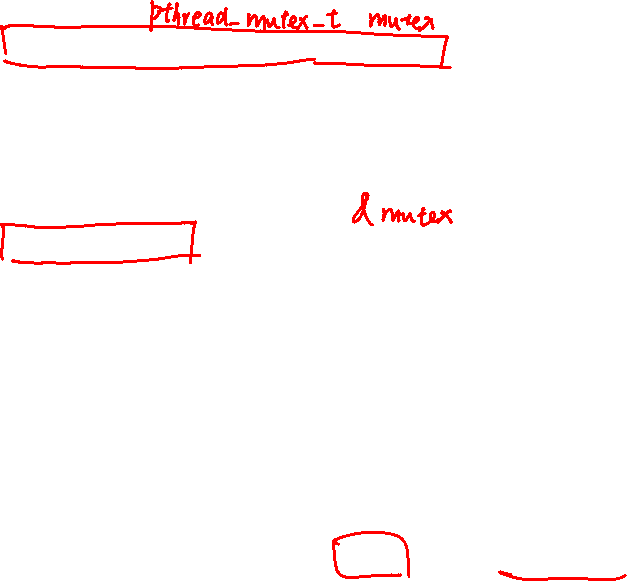 pthread_mutex_t mutex
& mutex